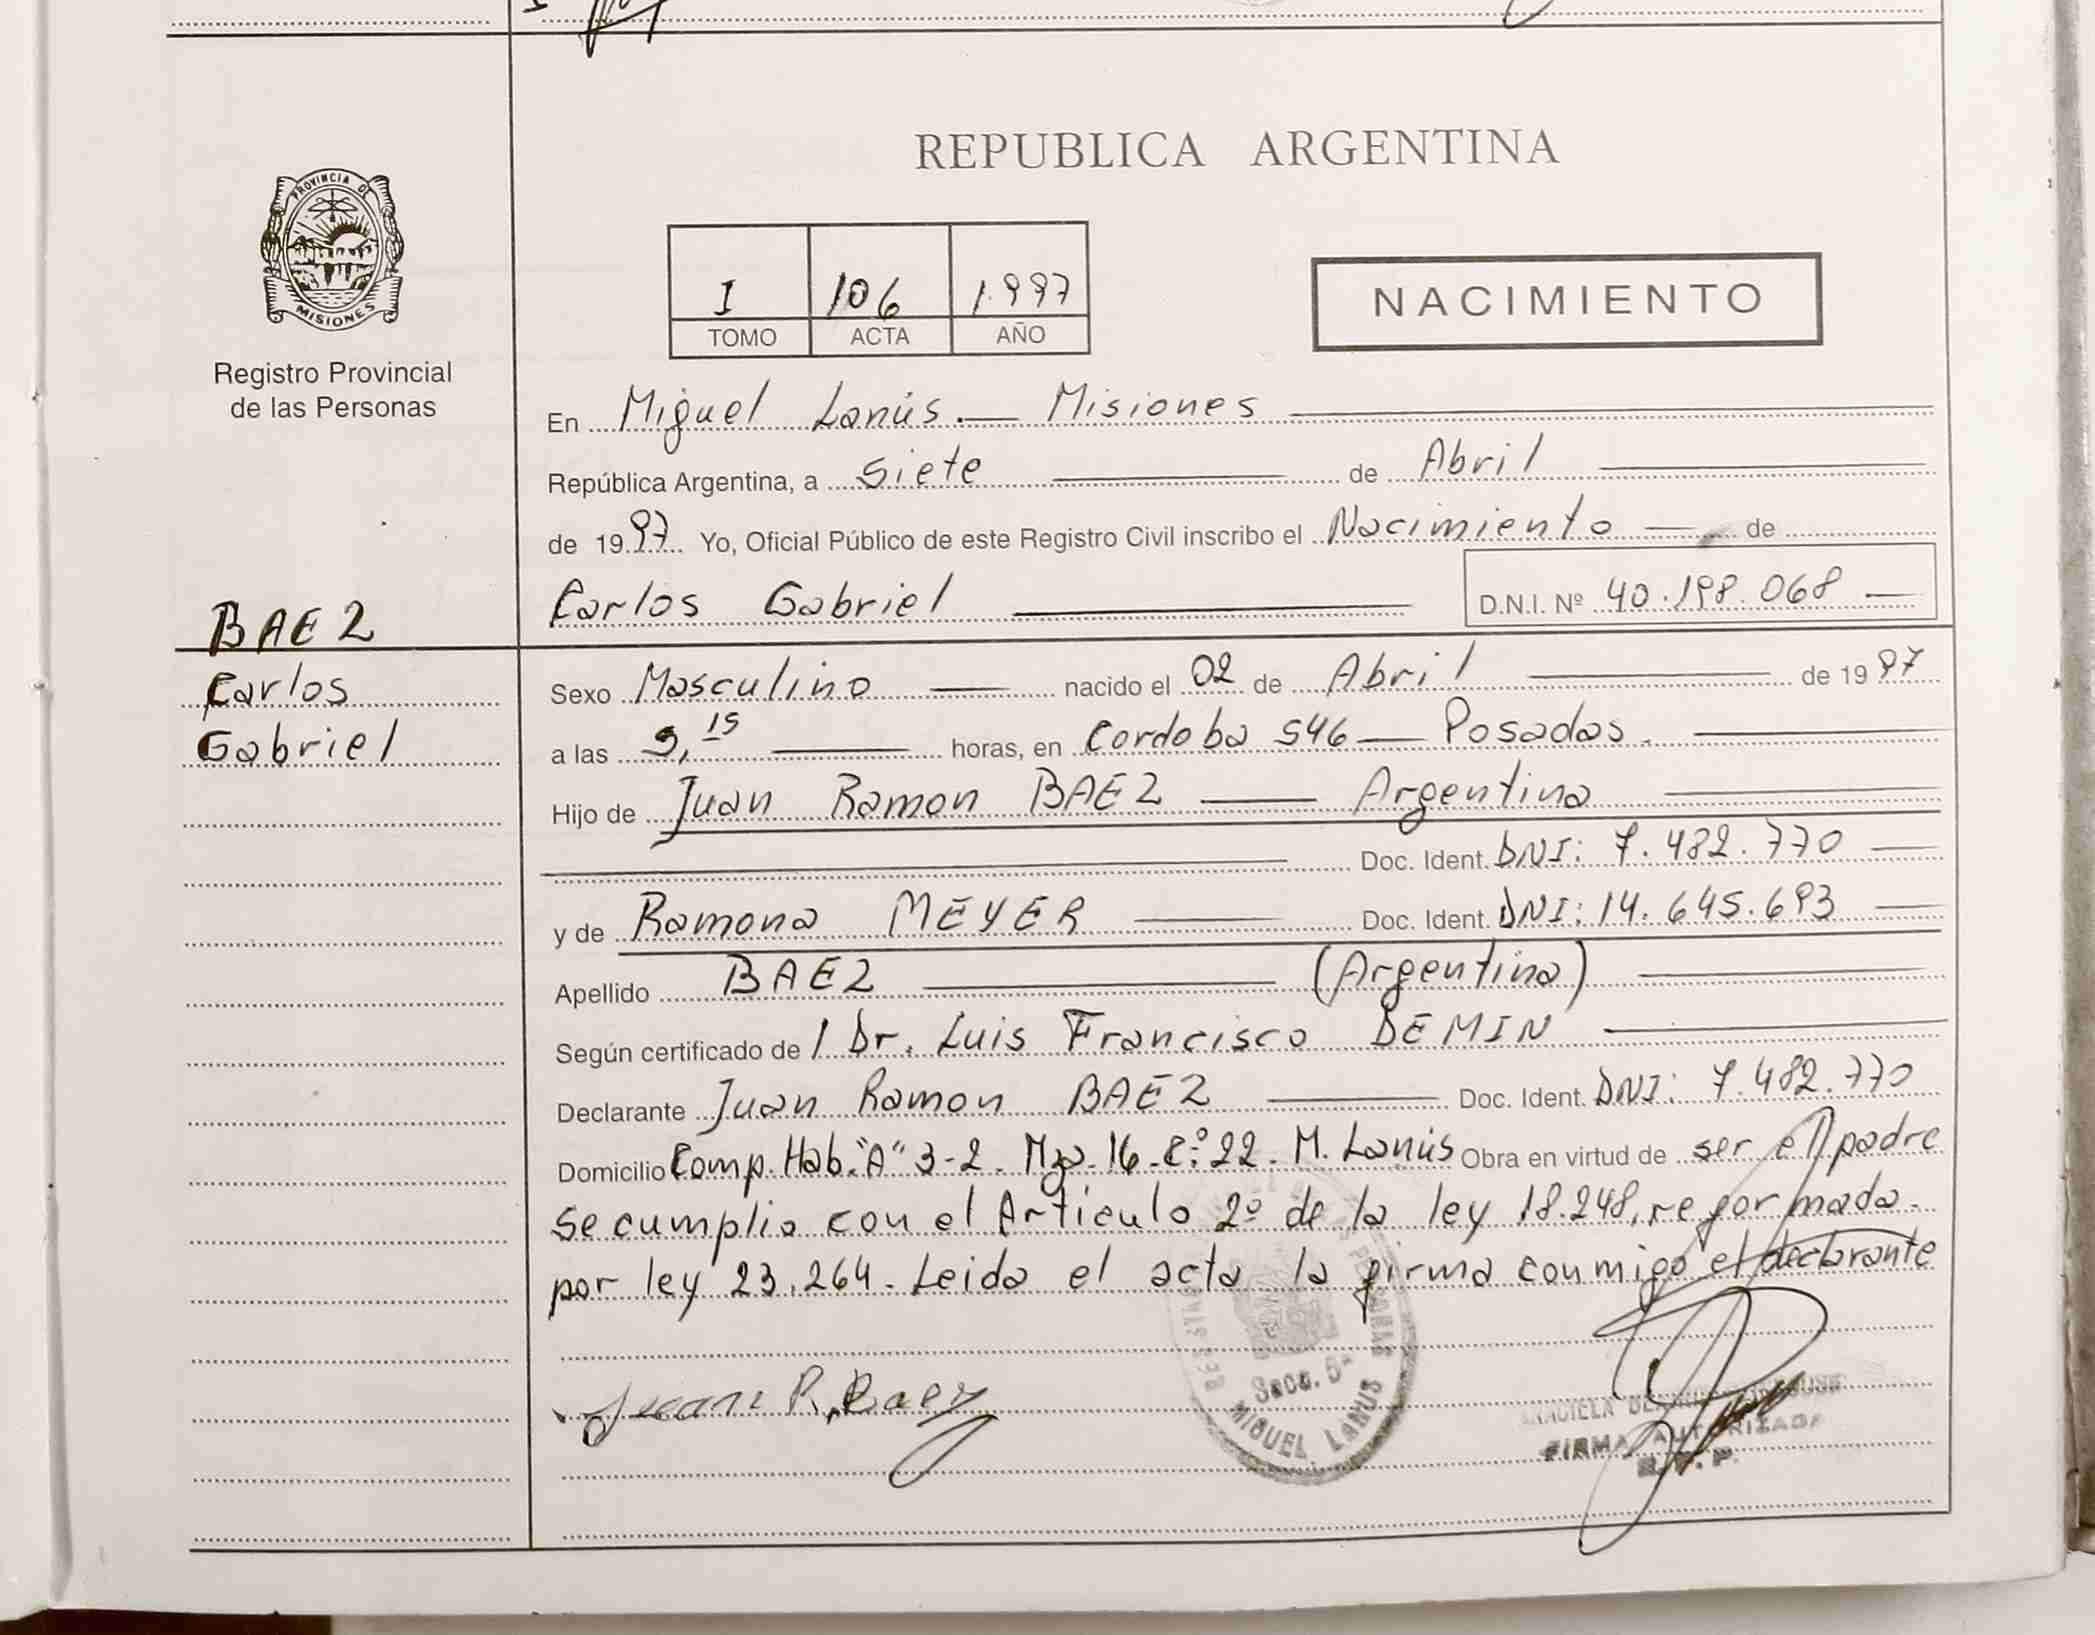 PROVINCIA DE
MISIONES
Registro Provincial
de las Personas
BAEZ
Carlos
Gabriel
REPUBLICA ARGENTINA
I 106 1997
TOMO ACTA AÑO
NACIMIENTO
En Miguel Lanús. — Misiones
República Argentina, a siete de Abril
de 1997 Yo, Oficial Público de este Registro Civil inscribo el Nacimiento — de
Carlos Gabriel D.N.I. Nº 40.198.068 —
Sexo Masculino — nacido el 02 de Abril de 1997
a las 9,15 horas, en Cordoba 546 — Posadas.
Hijo de Juan Ramon BAEZ — Argentino
Doc. Ident. DNI: 7.482.770 —
y de Ramona MEYER — Doc. Ident. DNI: 14.645.693 —
Apellido BAEZ — (Argentina)
Según certificado de 1 Dr. Luis Francisco DEMIN
Declarante Juan Ramon BAEZ — Doc. Ident. DNI: 7.482.770
Domicilio Comp. Hab. "A" 3-2. Mza. 16. C:º 22. M. Lanús Obra en virtud de ser el padre
se cumplio con el Articulo 2º de la ley 18.248, reformada.
por ley 23.264. Leida el acta la firma conmigo el declarante
Juan R. Baez
Secc. 5ª
MIGUEL LANUS
FIRMA AUTORIZADA
R. P. P.